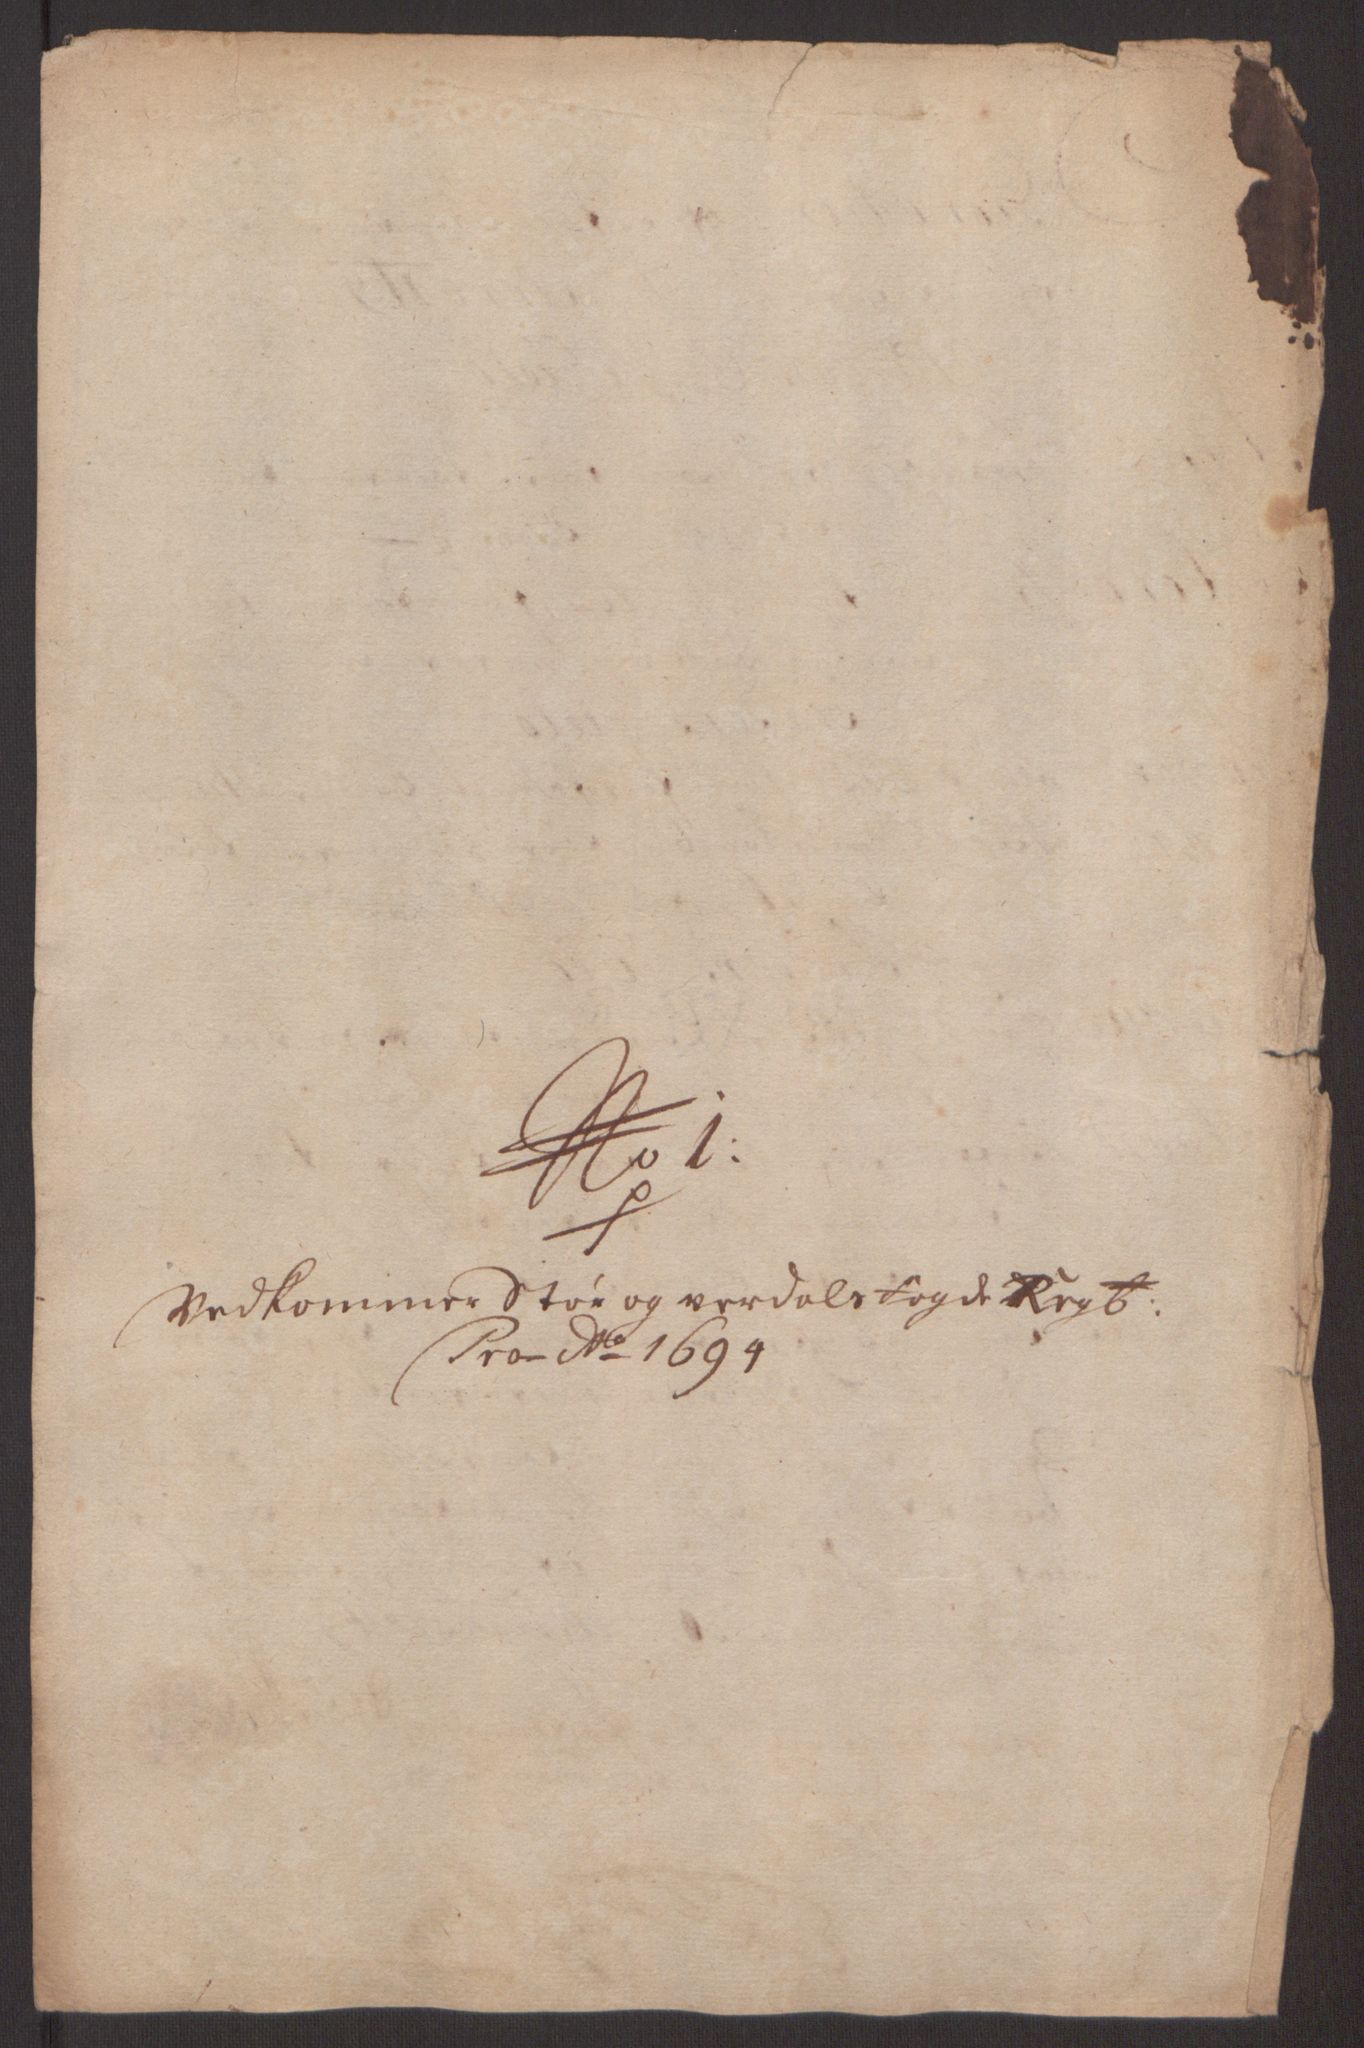 No 1:
Vedkommer Stør og verdals fogde Regb:
Pro Ao 1694